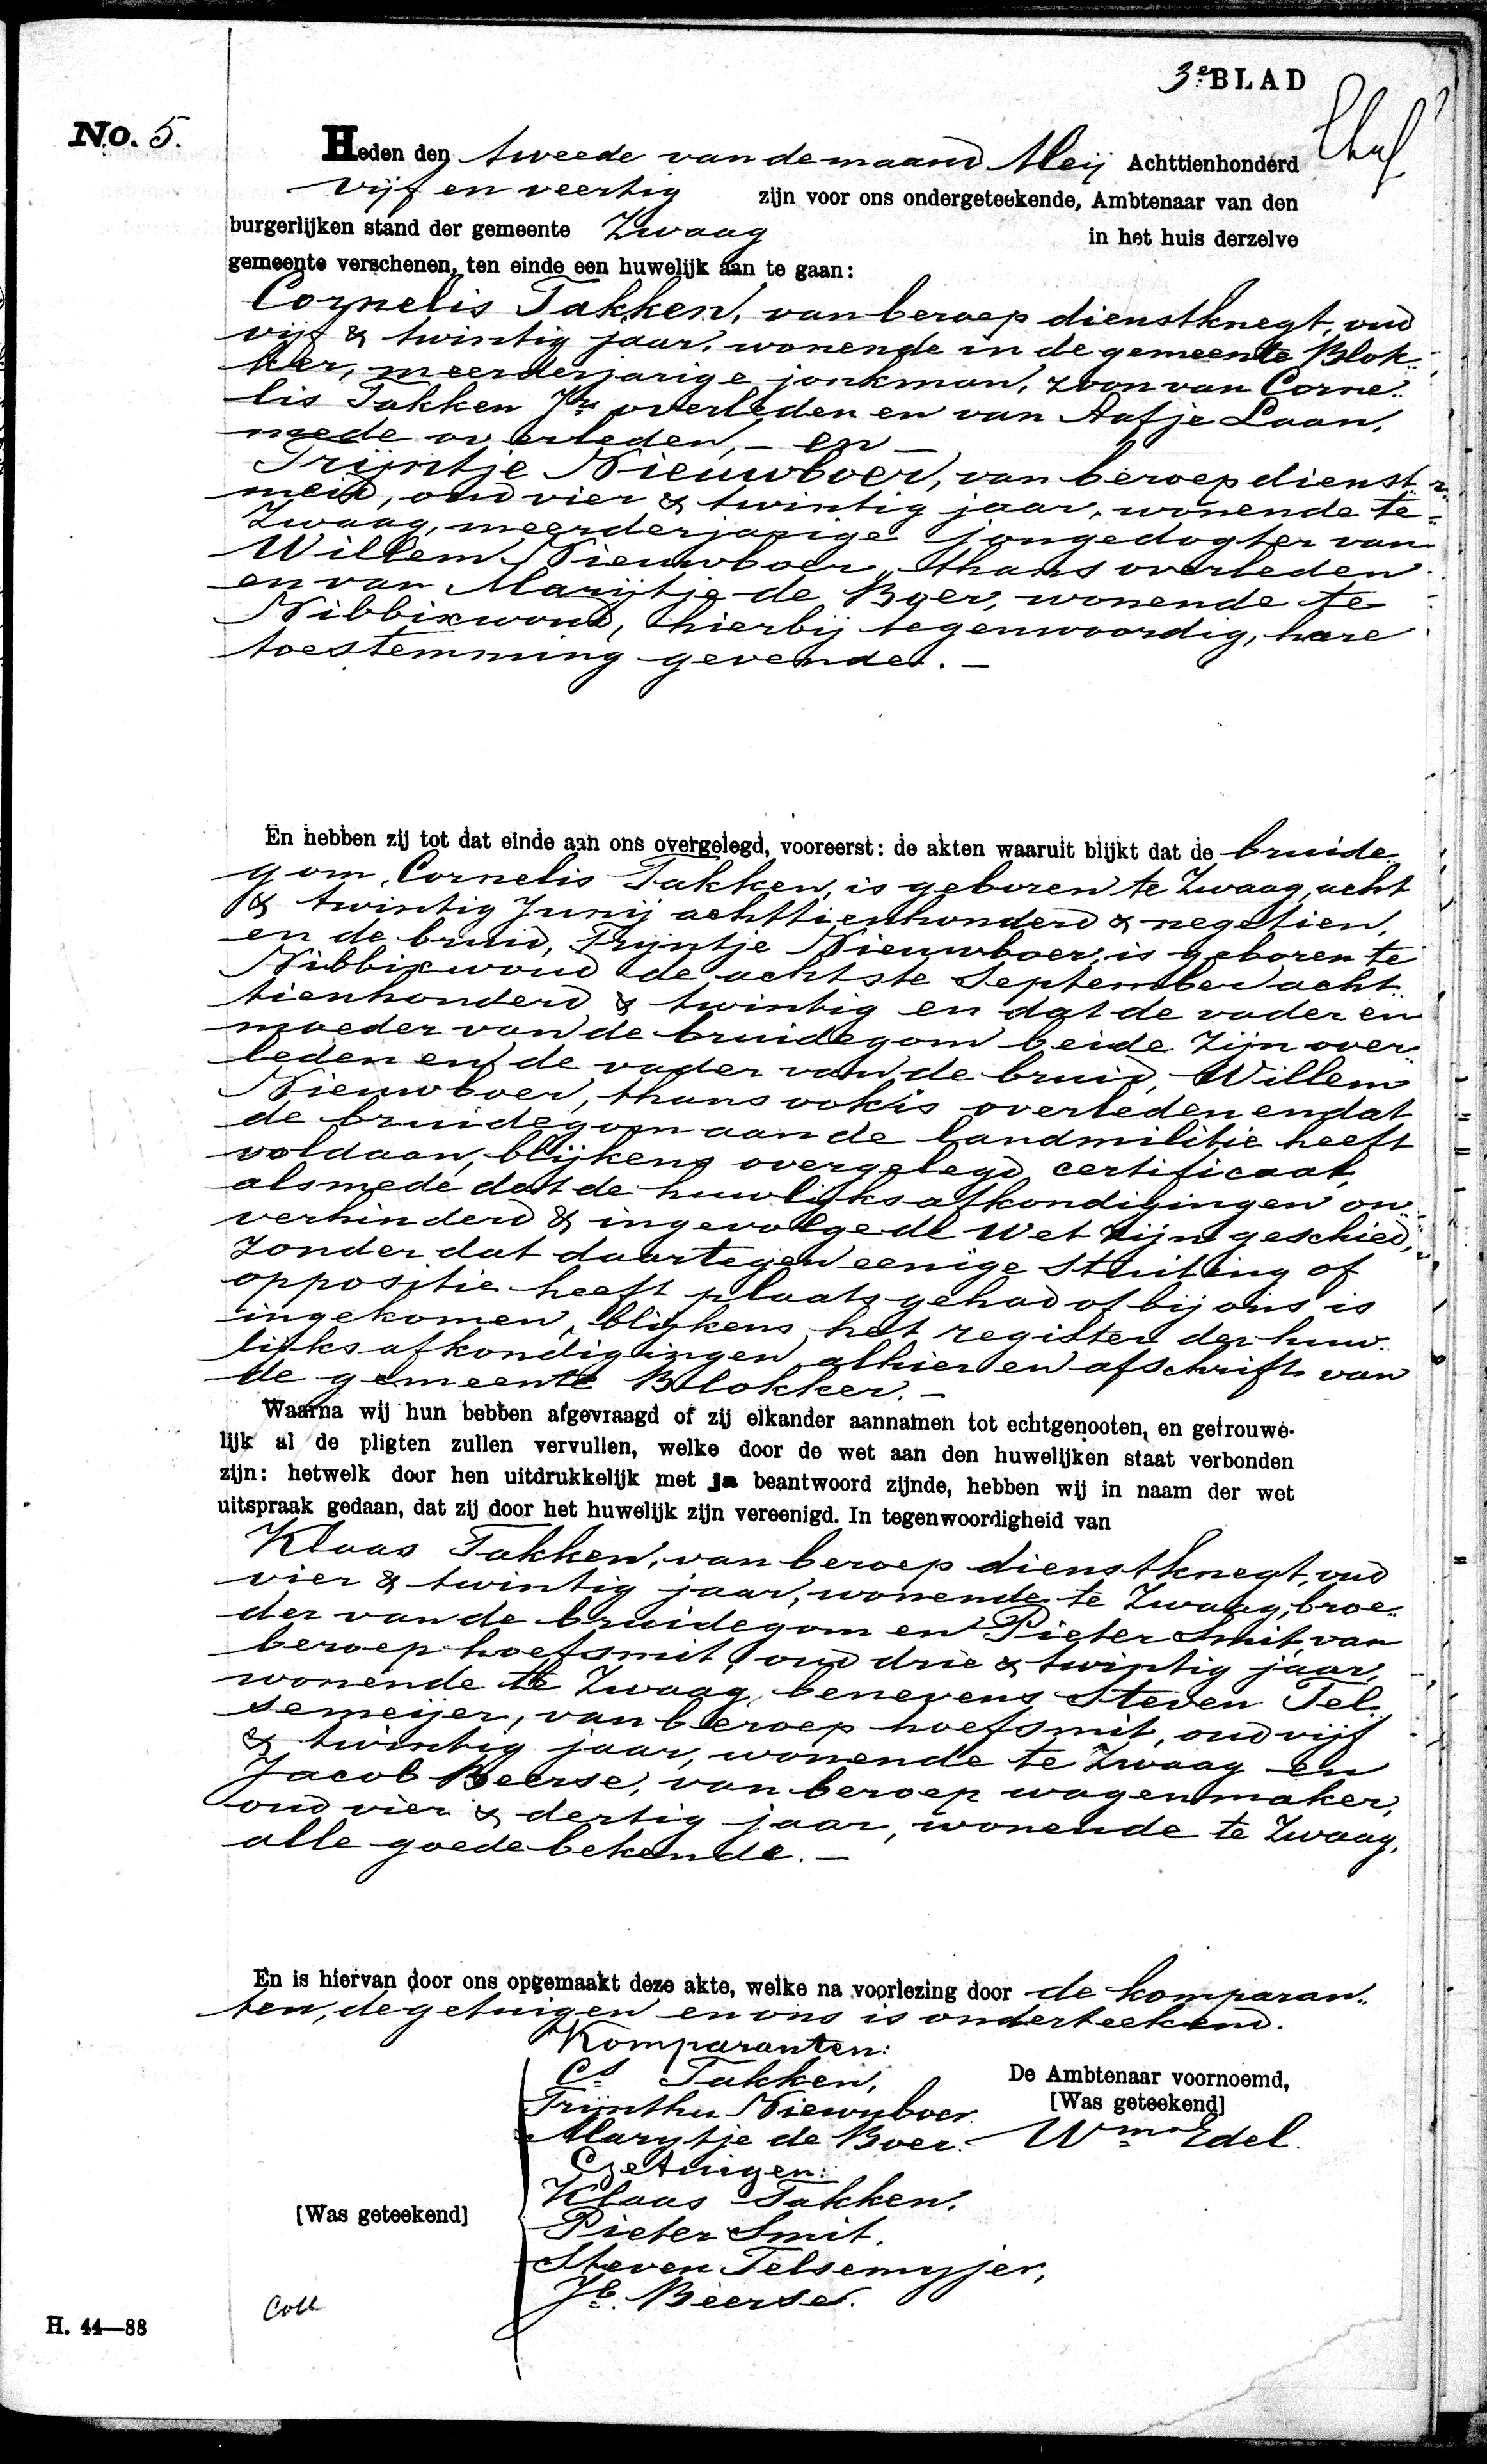 3e BLAD
No. 5.
Heden den tweede van de maand Meij Achttienhonderd
vijf en veertig zijn voor ons ondergeteekende, Ambtenaar van den
burgerlijken stand der gemeente Zwaag in het huis derzelve
gemeente verschenen, ten einde een huwelijk aan te gaan:
Cornelis Takken, van beroep dienstknegt, oud
vijf & twintig jaar, wonende in de gemeente Blok-
ker, meerderjarige jonkman, zoon van Corne-
lis Takken Jz. overleden en van Aafje Laan,
mede overleden, - en -
Trijntje Nieuwboer, van beroep dienst-
meid, oud vier & twintig jaar, wonende te
Zwaag, meerderjarige jongedogter van
Willem Nieuwboer, thans overleden
en van Marijtje de Boer, wonende te
Nibbixwoud, hierbij tegenwoordig, hare
toestemming gevende. -
En hebben zij tot dat einde aan ons overgelegd, vooreerst: de akten waaruit blijkt dat de bruide-
gom, Cornelis Takken, is geboren te Zwaag, acht
& twintig Junij achttienhonderd & negetien,
en de bruid, Trijntje Nieuwboer, is geboren te
Nibbixwoud de achtste September acht-
tienhonderd & twintig en dat de vader en
moeder van de bruidegom beide zijn over-
leden en de vader van de bruid, Willem
Nieuwboer, thans ook is overleden en dat
de bruidegom aan de landmilitie heeft
voldaan, blijkens overgelegd certificaat,
alsmede dat de huwlijksafkondigingen on-
verhinderd & ingevolge de Wet zijn geschied,
zonder dat daartegen eenige stuiting of
oppositie heeft plaats gehad of bij ons is
ingekomen, blijkens het register der huw-
lijksafkondigingen alhier en afschrift van
de gemeente Blokker. -
Waarna wij hun hebben afgevraagd of zij elkander aannamen tot echtgenooten, en getrouwe-
lijk al de pligten zullen vervullen, welke door de wet aan den huwelijken staat verbonden
zijn: hetwelk door hen uitdrukkelijk met ja beantwoord zijnde, hebben wij in naam der wet
uitspraak gedaan, dat zij door het huwelijk zijn vereenigd. In tegenwoordigheid van
Klaas Takken, van beroep dienstknegt, oud
vier & twintig jaar, wonende te Zwaag, broe-
der van de bruidegom en Pieter Smit, van
beroep hoefsmit, oud drie & twintig jaar,
wonende te Zwaag, benevens Steven Tel-
semeijer, van beroep hoefsmit, oud vijf
& twintig jaar, wonende te Zwaag en
Jacob Beerse, van beroep wagenmaker,
oud vier & dertig jaar, wonende te Zwaag,
alle goede bekende. -
En is hiervan door ons opgemaakt deze akte, welke na voorlezing door de komparan-
ten, de getuigen en ons is onderteekend.
Komparanten:
Cs Takken,
Trijnthu Niewuboer
Marytje de Boer.
Getuigen:
Klaas Takken.
Pieter Smit.
Steven Telsemyjer,
Jb. Beerse.
De Ambtenaar voornoemd,
[Was geteekend]
Wm Edel.
[Was geteekend]
Coll
H. 44—88